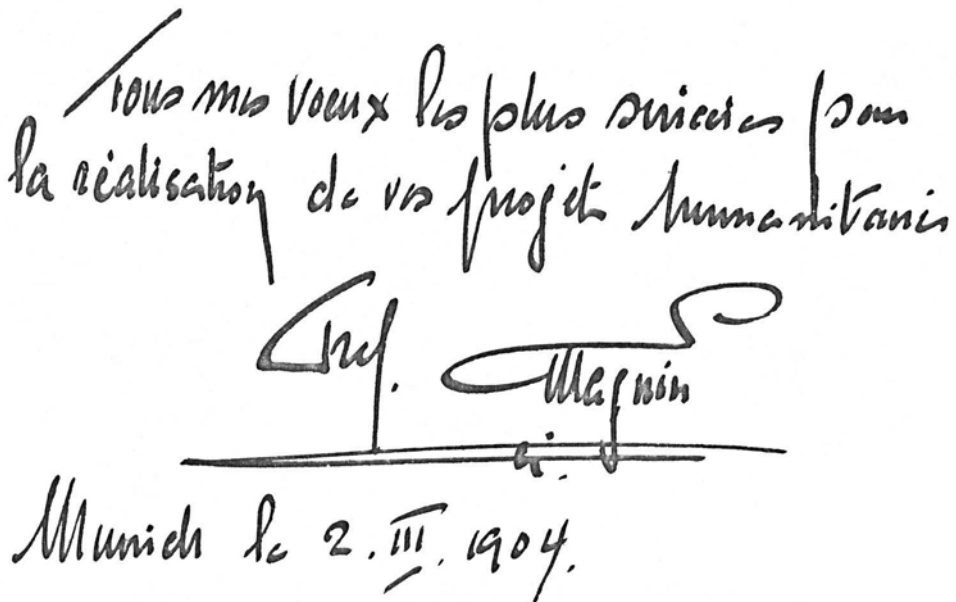 Tous mes voeux les plus sincères pour
la réalisation de vos projets humanitaires
Prof. Magnin
Munich le 2. III. 1904.